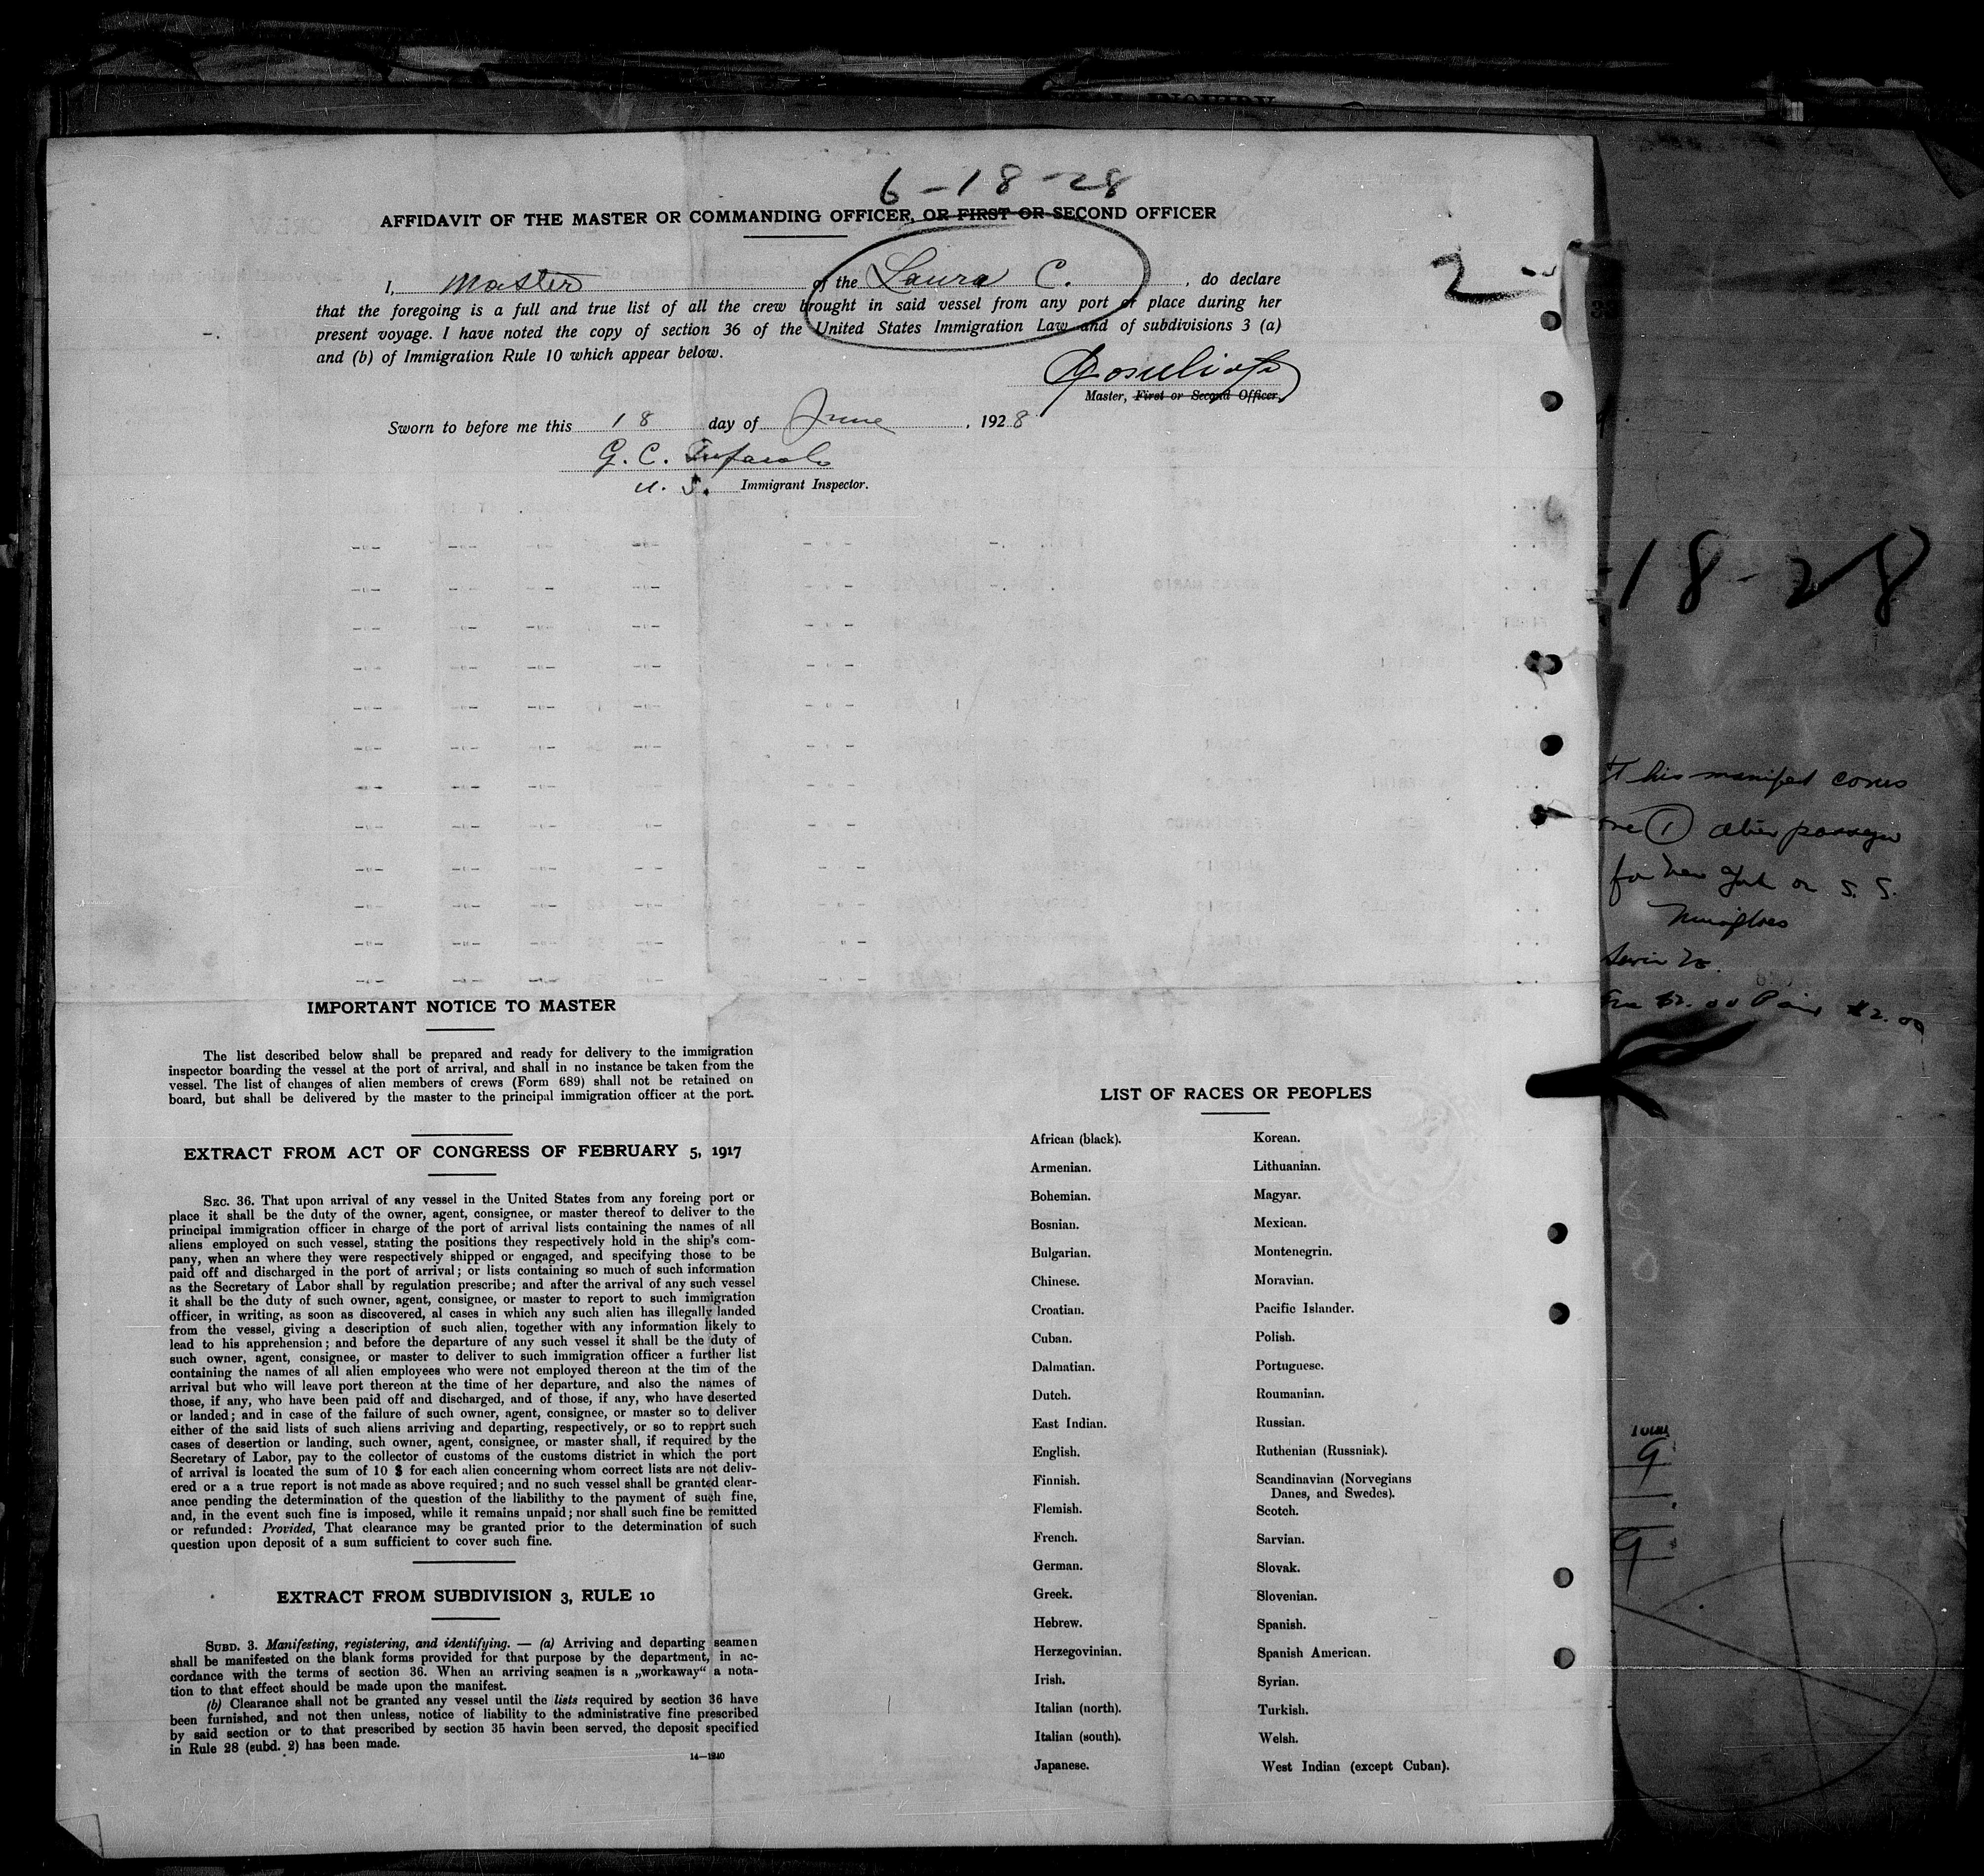 6-18-28
AFFIDAVIT OF THE MASTER OR COMMANDING OFFICER, OR FIRST OR SECOND OFFICER
I, Master of the Laura C. , do declare
that the foregoing is a full and true list of all the crew brought in said vessel from any port or place during her
present voyage. I have noted the copy of section 36 of the United States Immigration Law and of subdivisions 3 (a)
and (b) of Immigration Rule 10 which appear below.
2
Master, First or Second Officer.
Sworn to before me this 18 day of June , 1928
G. C.
U. S. Immigrant Inspector.
IMPORTANT NOTICE TO MASTER
The list described below shall be prepared and ready for delivery to the immigration
inspector boarding the vessel at the port of arrival, and shall in no instance be taken from the
vessel. The list of changes of alien members of crews (Form 689) shall not be retained on
board, but shall be delivered by the master to the principal immigration officer at the port.
EXTRACT FROM ACT OF CONGRESS OF FEBRUARY 5, 1917
SEC. 36. That upon arrival of any vessel in the United States from any foreing port or
place it shall be the duty of the owner, agent, consignee, or master thereof to deliver to the
principal immigration officer in charge of the port of arrival lists containing the names of all
aliens employed on such vessel, stating the positions they respectively hold in the ship's com-
pany, when an where they were respectively shipped or engaged, and specifying those to be
paid off and discharged in the port of arrival; or lists containing so much of such information
as the Secretary of Labor shall by regulation prescribe; and after the arrival of any such vessel
it shall be the duty of such owner, agent, consignee, or master to report to such immigration
officer, in writing, as soon as discovered, al cases in which any such alien has illegally landed
from the vessel, giving a description of such alien, together with any information likely to
lead to his apprehension; and before the departure of any such vessel it shall be the duty of
such owner, agent, consignee, or master to deliver to such immigration officer a further list
containing the names of all alien employees who were not employed thereon at the tim of the
arrival but who will leave port thereon at the time of her departure, and also the names of
those, if any, who have been paid off and discharged, and of those, if any, who have deserted
or landed; and in case of the failure of such owner, agent, consignee, or master so to deliver
either of the said lists of such aliens arriving and departing, respectively, or so to report such
cases of desertion or landing, such owner, agent, consignee, or master shall, if required by the
Secretary of Labor, pay to the collector of customs of the customs district in which the port
of arrival is located the sum of 10 $ for each alien concerning whom correct lists are not deliv-
ered or a a true report is not made as above required; and no such vessel shall be granted clear-
ance pending the determination of the question of the liabilithy to the payment of such fine,
and, in the event such fine is imposed, while it remains unpaid; nor shall such fine be remitted
or refunded: Provided, That clearance may be granted prior to the determination of such
question upon deposit of a sum sufficient to cover such fine.
EXTRACT FROM SUBDIVISION 3, RULE 10
SUBD. 3. Manifesting, registering, and identifying. — (a) Arriving and departing seamen
shall be manifested on the blank forms provided for that purpose by the department, in ac-
cordance with the terms of section 36. When an arriving seamen is a „workaway“ a nota-
tion to that effect should be made upon the manifest.
(b) Clearance shall not be granted any vessel until the lists required by section 36 have
been furnished, and not then unless, notice of liability to the administrative fine prescribed
by said section or to that prescribed by section 35 havin been served, the deposit specified
in Rule 28 (subd. 2) has been made.
14—1240
LIST OF RACES OR PEOPLES
African (black).
Armenian.
Bohemian.
Bosnian.
Bulgarian.
Chinese.
Croatian.
Cuban.
Dalmatian.
Dutch.
East Indian.
English.
Finnish.
Flemish.
French.
German.
Greek.
Hebrew.
Herzegovinian.
Irish.
Italian (north).
Italian (south).
Japanese.
Korean.
Lithuanian.
Magyar.
Mexican.
Montenegrin.
Moravian.
Pacific Islander.
Polish.
Portuguese.
Roumanian.
Russian.
Ruthenian (Russniak).
Scandinavian (Norvegians
Danes, and Swedes).
Scotch.
Sarvian.
Slovak.
Slovenian.
Spanish.
Spanish American.
Syrian.
Turkish.
Welsh.
West Indian (except Cuban).
18-28
This manifest covers
one (1) alien passenger
for New York on S. S.
$2.00 Paid $2.00
Total
9
9